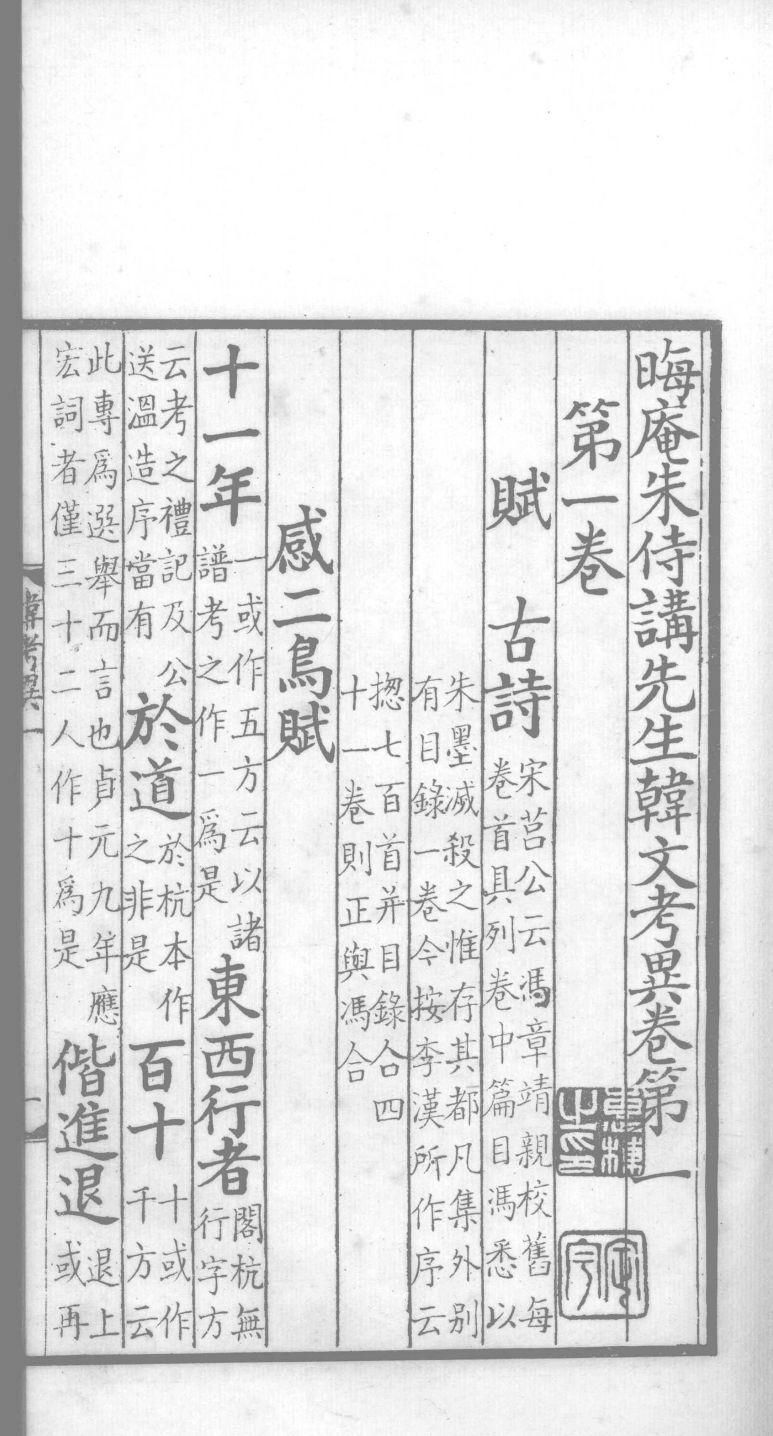 晦庵朱侍講先生韓文考異卷第一
第一卷
賦　古詩　宋莒公云馮章靖親校舊每
卷首具列卷中篇目馮悉以
朱墨滅殺之惟存其都凡集外別
有目錄一卷今按李漢所作序云
揔七百首并目錄合四
十一卷則正與馮合
感二鳥賦
十一年　一或作五方云以諸
譜考之作一爲是　東西行者　閣杭無
行字方
云考之禮記及公
送溫造序當有　於道　於杭本作
之非是　百十　十或作
千方云
此專爲選舉而言也貞元九年應
宏詞者僅三十二人作十爲是　偕進退　退上
或再
韓考異一
惠棟之印
定宇